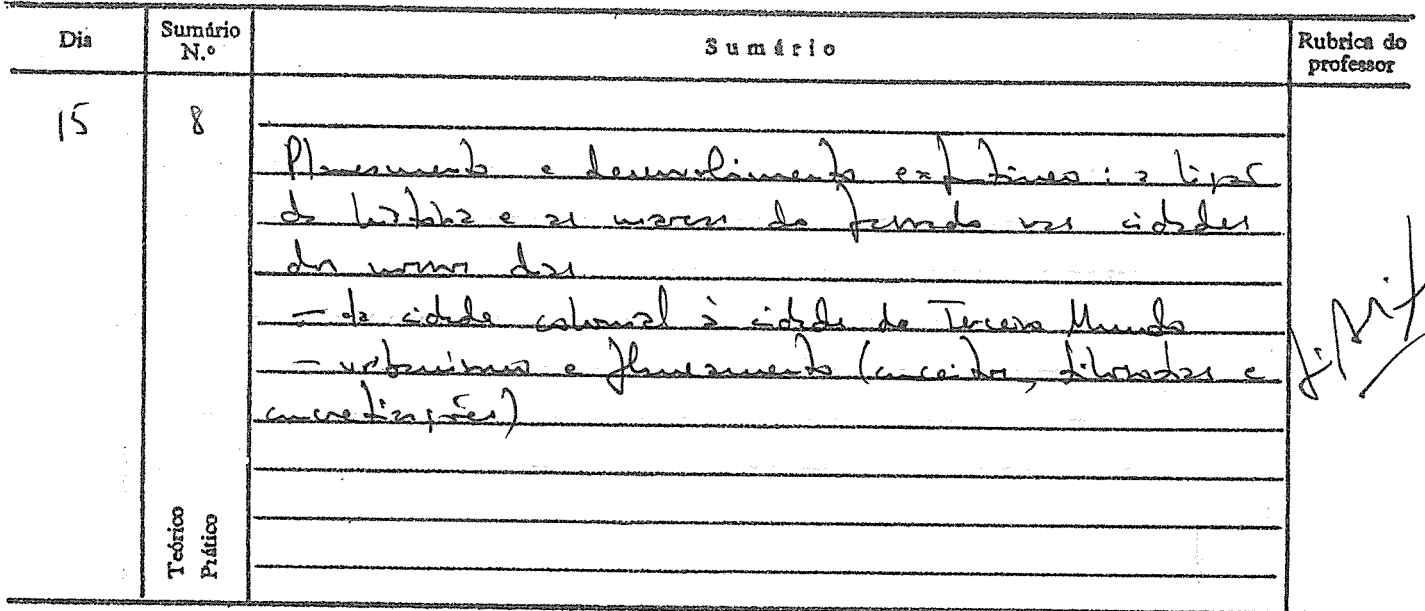 Dia
Sumário N.º
Sumário
Rubrica do professor
15
8
Planeamento e desenvolvimento espontâneo: a lição
da história e as marcas do passado nas cidades
dos nossos dias
- da cidade colonial à cidade do Terceiro Mundo
- urbanismo e planeamento (conceitos, filosofias e
concretizações)
Teórico
Prático